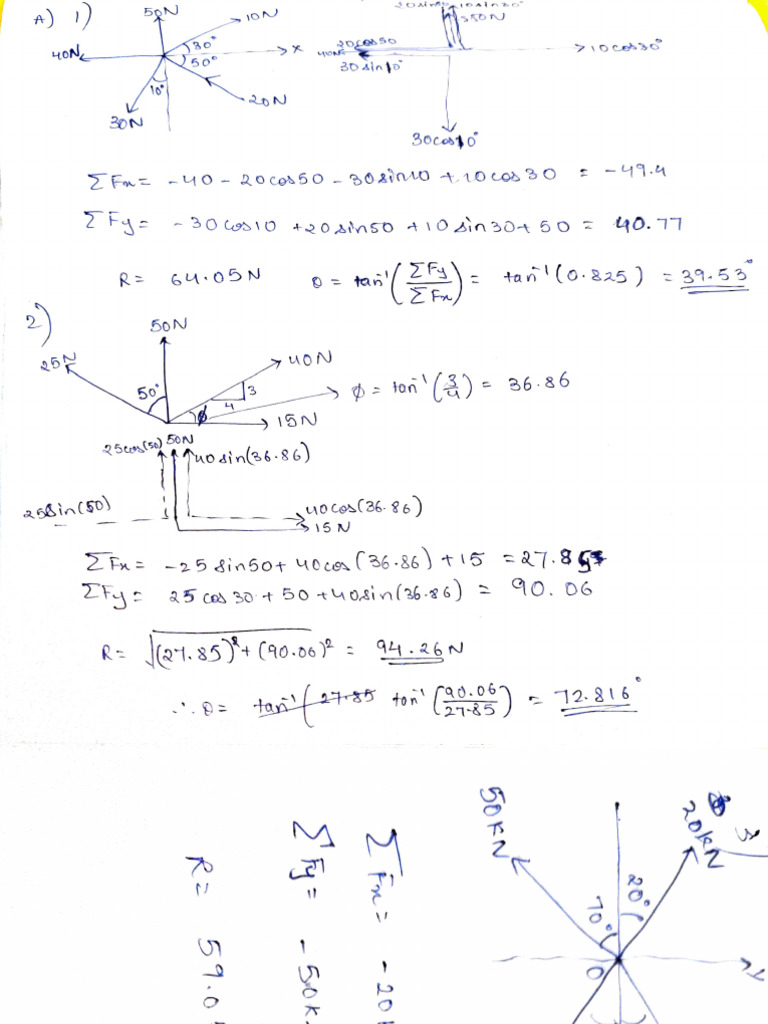 A) 1)
50N
10N
40N
30°
50°
x
10°
20N
30N
20sin50
10sin30°
50N
20cos50
40N
30sin10°
10cos30°
30cos10°
ΣFx = -40 - 20cos50 - 30sin10 + 10cos30 = -49.4
ΣFy = -30cos10 + 20sin50 + 10sin30 + 50 = 40.77
R = 64.05N θ = tan⁻¹(ΣFy/ΣFx) = tan⁻¹(0.825) = 39.53°
2)
50N
25N
40N
50°
3
4
ϕ
ϕ = tan⁻¹(3/4) = 36.86
15N
25cos(50) 50N
40sin(36.86)
25sin(50)
40cos(36.86)
15N
ΣFx = -25sin50 + 40cos(36.86) + 15 = 27.85
ΣFy = 25cos30 + 50 + 40sin(36.86) = 90.06
R = √(27.85)² + (90.06)² = 94.26N
∴ θ = tan⁻¹(27.85 tan⁻¹(90.06/27.85) = 72.816°
20kN
50kN
20°
70°
O
ΣFx = -20
ΣFy = -50k
R = 59.0